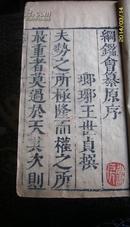 綱鑑會纂原序
瑯琊王世貞撰
夫勢之所極隆而權之所
最重者莫過於天其次則
2014/03/14